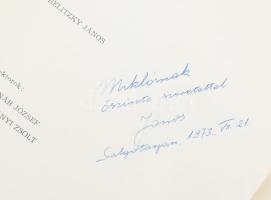 BELITZKY JÁNOS
NÁR JÓZSEF
NYI ZSOLT
Miklósnak
őszinte szeretettel
János
Salgótarján, 1973. VI. 21